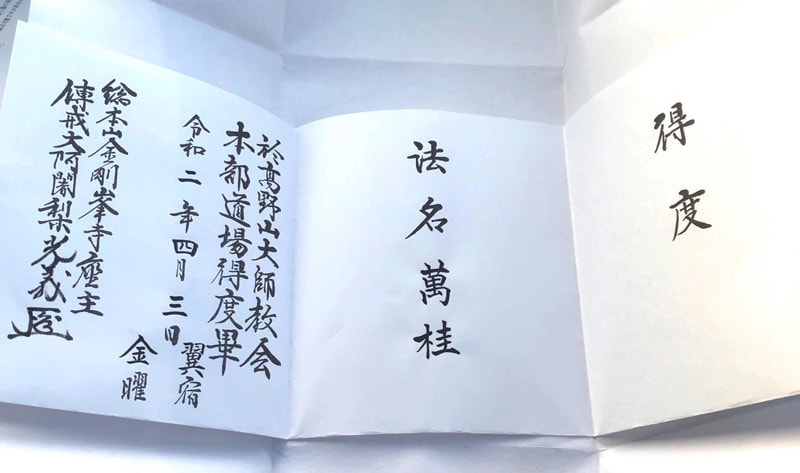 得度
法名萬桂
於高野山大師教会
本部道場得度畢
令和二年四月三日
翼宿
金曜
総本山金剛峯寺座主
傳戒大阿闍梨光義